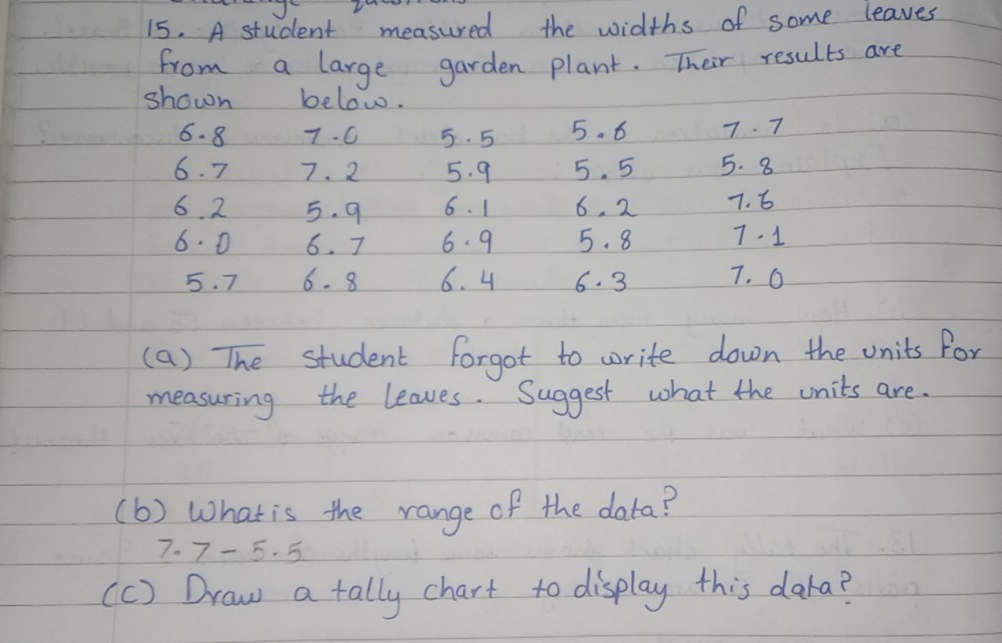 15. A student measured the widths of some leaves
from a large garden plant. Their results are
shown below.
6.8 7.0 5.5 5.6 7.7
6.7 7.2 5.9 5.5 5.8
6.2 5.9 6.1 6.2 7.6
6.0 6.7 6.9 5.8 7.1
5.7 6.8 6.4 6.3 7.0
(a) The student forgot to write down the units for
measuring the leaves. Suggest what the units are.
(b) What is the range of the data?
7.7 - 5.5
(c) Draw a tally chart to display this data?